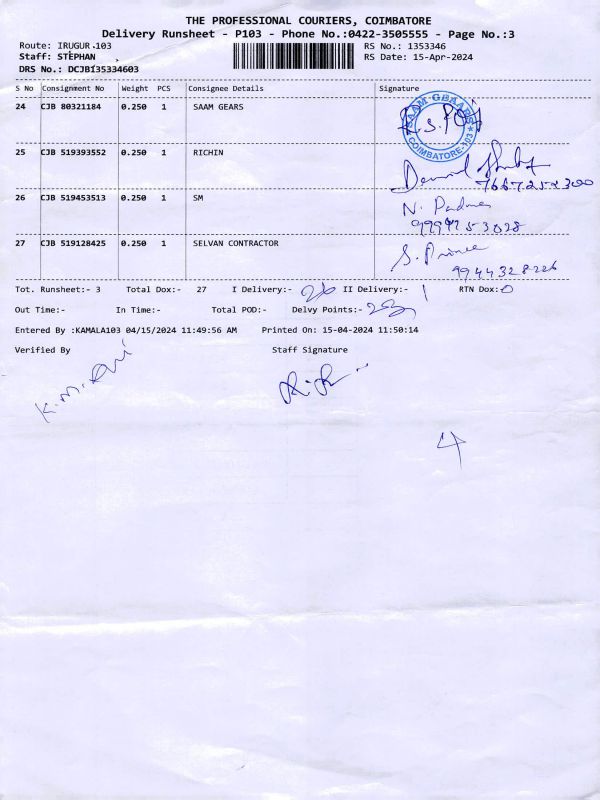 THE PROFESSIONAL COURIERS, COIMBATORE
Delivery Runsheet - P103 - Phone No.:0422-3505555 - Page No.:3
Route: IRUGUR 103 RS No.: 1353346
Staff: STEPHAN RS Date: 15-Apr-2024
DRS No.: DCJB135334603
S No Consignment No Weight PCS Consignee Details Signature
24 CJB 80321184 0.250 1 SAAM GEARS
COIMBATORE-103
25 CJB 519393552 0.250 1 RICHIN
26 CJB 519453513 0.250 1 SM N. Padma
27 CJB 519128425 0.250 1 SELVAN CONTRACTOR S. Prince
9944328226
Tot. Runsheet:- 3 Total Dox:- 27 I Delivery:- 26 II Delivery:- 1 RTN Dox:- 0
Out Time:- In Time:- Total POD:- Delvy Points:-
Entered By :KAMALA103 04/15/2024 11:49:56 AM Printed On: 15-04-2024 11:50:14
Verified By Staff Signature
4